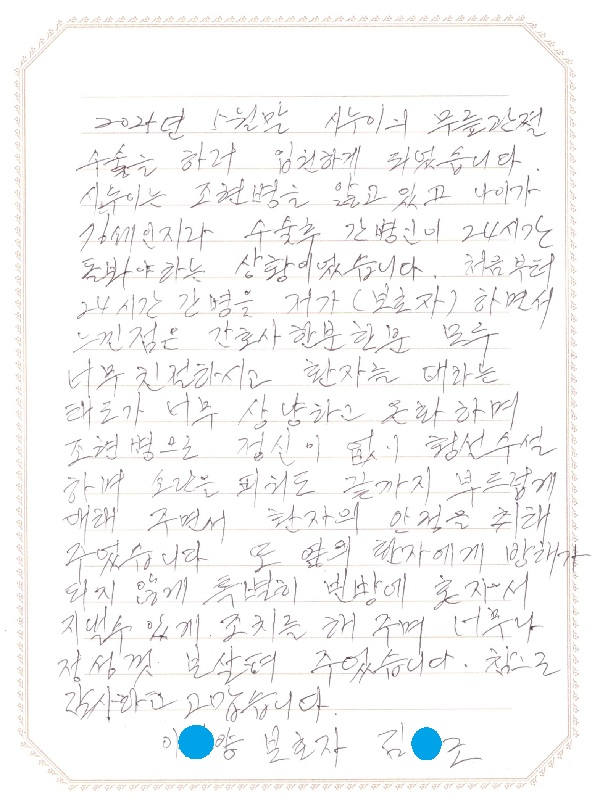 2024년 5월말 시누이의 무릎관절
수술을 하러 입원하게 되었습니다.
시누이는 조현병을 앓고 있고 나이가
수술후 간병인이 24시간
돌봐야하는 상황이었습니다. 처음부터
24시간 간병을 저가 (보호자) 하면서
느낀점은 간호사 한분한분 모두
너무 친절하시고 환자를 대하는
태도가 너무 상냥하고 온화하며
조현병으로 정신이 없이 횡설수설
하며 소란을 피워도 끝까지 부드럽게
대해 주면서 환자의 안정을 취해
주었습니다 또 옆의 환자에게 방해가
되지 않게 특별히 빈방에 혼자서
지낼수 있게 조치를 해 주며 너무나
정성껏 보살펴 주었습니다. 참으로
감사하고 고맙습니다.
이 양 보호자 김